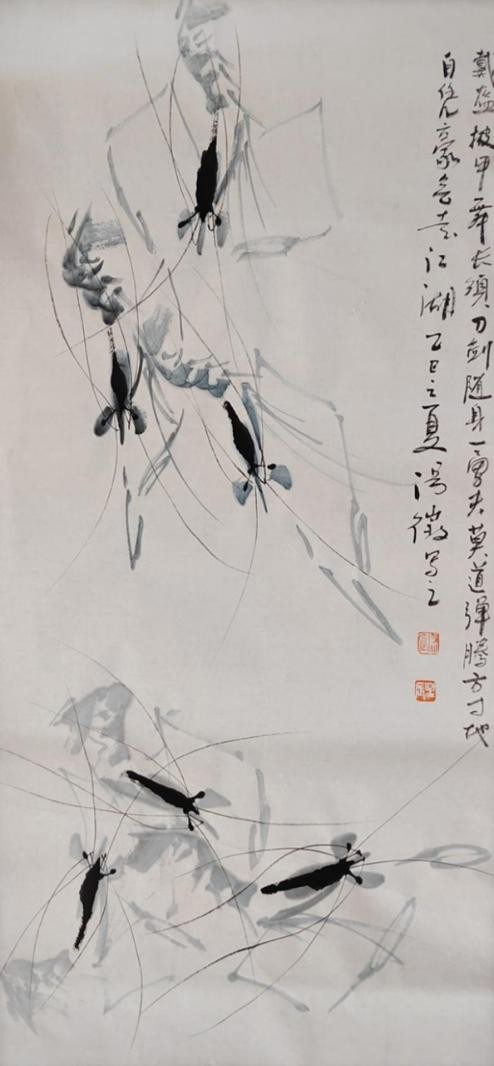 戴盔披甲舞长须刀剑随身一勇夫莫道弹腾方寸地
自凭豪气走江湖乙巳之夏汤微写之